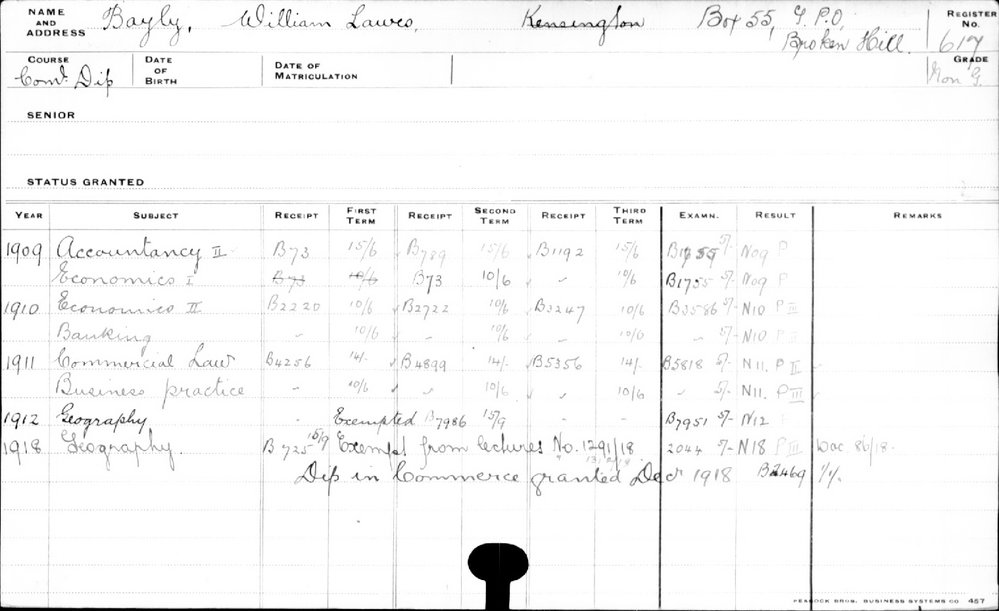 NAME AND ADDRESS Bayly, William Lawes, Kensington Box 55, G.P.O, Broken Hill. REGISTER No. 617
COURSE Coml. Dip DATE OF BIRTH DATE OF MATRICULATION GRADE Non G.
SENIOR
STATUS GRANTED
YEAR SUBJECT RECEIPT FIRST TERM RECEIPT SECOND TERM RECEIPT THIRD TERM EXAMN. RESULT REMARKS
1909 Accountancy II B73 15/6 B789 15/6 B1192 15/6 B1755 5/- N09 P
Economics I B73 10/6 B73 10/6 " 10/6 B1755 5/- N09 P
1910 Economics II B2220 10/6 B2722 10/6 B3247 10/6 B3586 5/- N10 P II
Banking " 10/6 " 10/6 " 10/6 " 5/- N10 P II
1911 Commercial Law B4256 14/- B4899 14/- B5356 14/- B5818 5/- N11. P II
Business practice " 10/6 " 10/6 " 10/6 " 5/- N11. P III
1912 Geography - Exempted B7986 15/9 - - B7951 5/- N12
1918 Geography. B725 15/9 Exempt from lectures No. 1291/18 2044 5/- N18 P III Doc 86/18.
Dip in Commerce granted Decr 1918 B2469 1/1/.
PEACOCK BROS. BUSINESS SYSTEMS CO 457